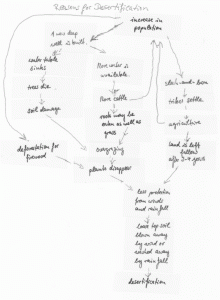 Reasons for Desertification
increase in
population
A new deep
well is built
water table
sinks
More water is
available
slash-and-burn
trees die
More cattle
tribes settle
soil damage
roots may be
eaten as well as
grass
agriculture
deforestation for
firewood
overgrazing
land is left
fallow
after 2-3 years
plants disappear
less protection
from winds
and rainfall
loose top soil
blown away
by wind or
washed away
by rainfall
desertification